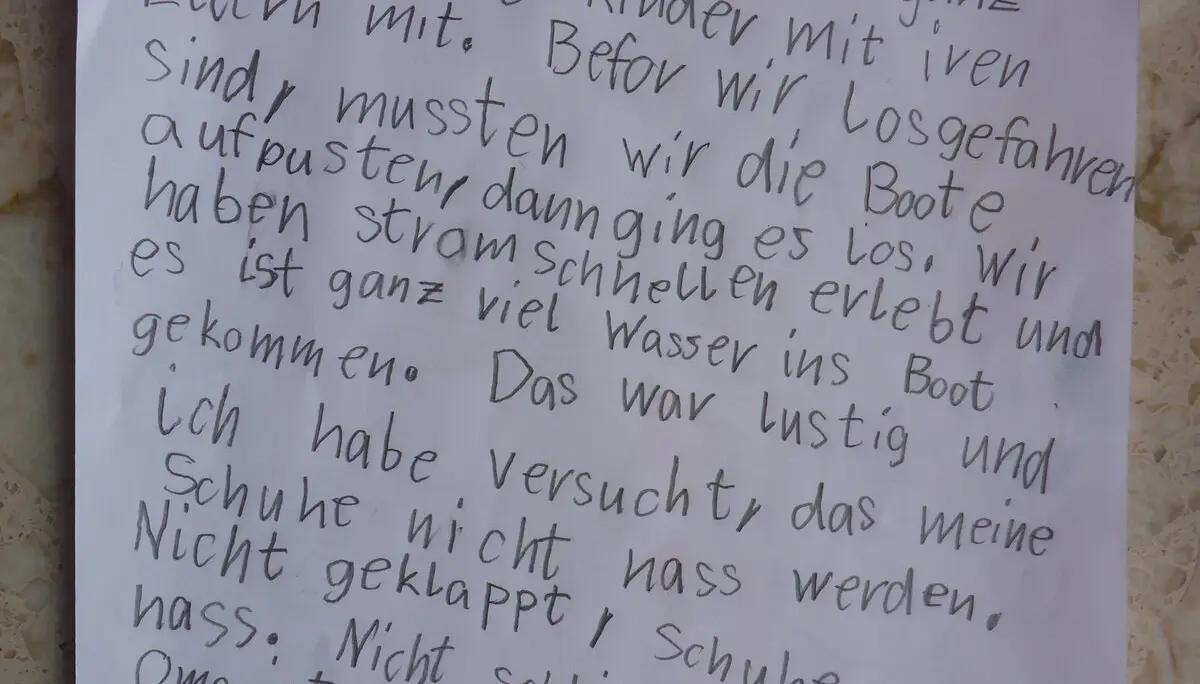 Kinder mit iren
Eltern mit. Befor wir Losgefahren
sind, mussten wir die Boote
aufpusten, dann ging es los. Wir
haben stromschnellen erlebt und
es ist ganz viel Wasser ins Boot
gekommen. Das war lustig und
ich habe versucht, das meine
Schuhe nicht nass werden.
Nicht geklappt, Schuhe
nass. Nicht
Oma